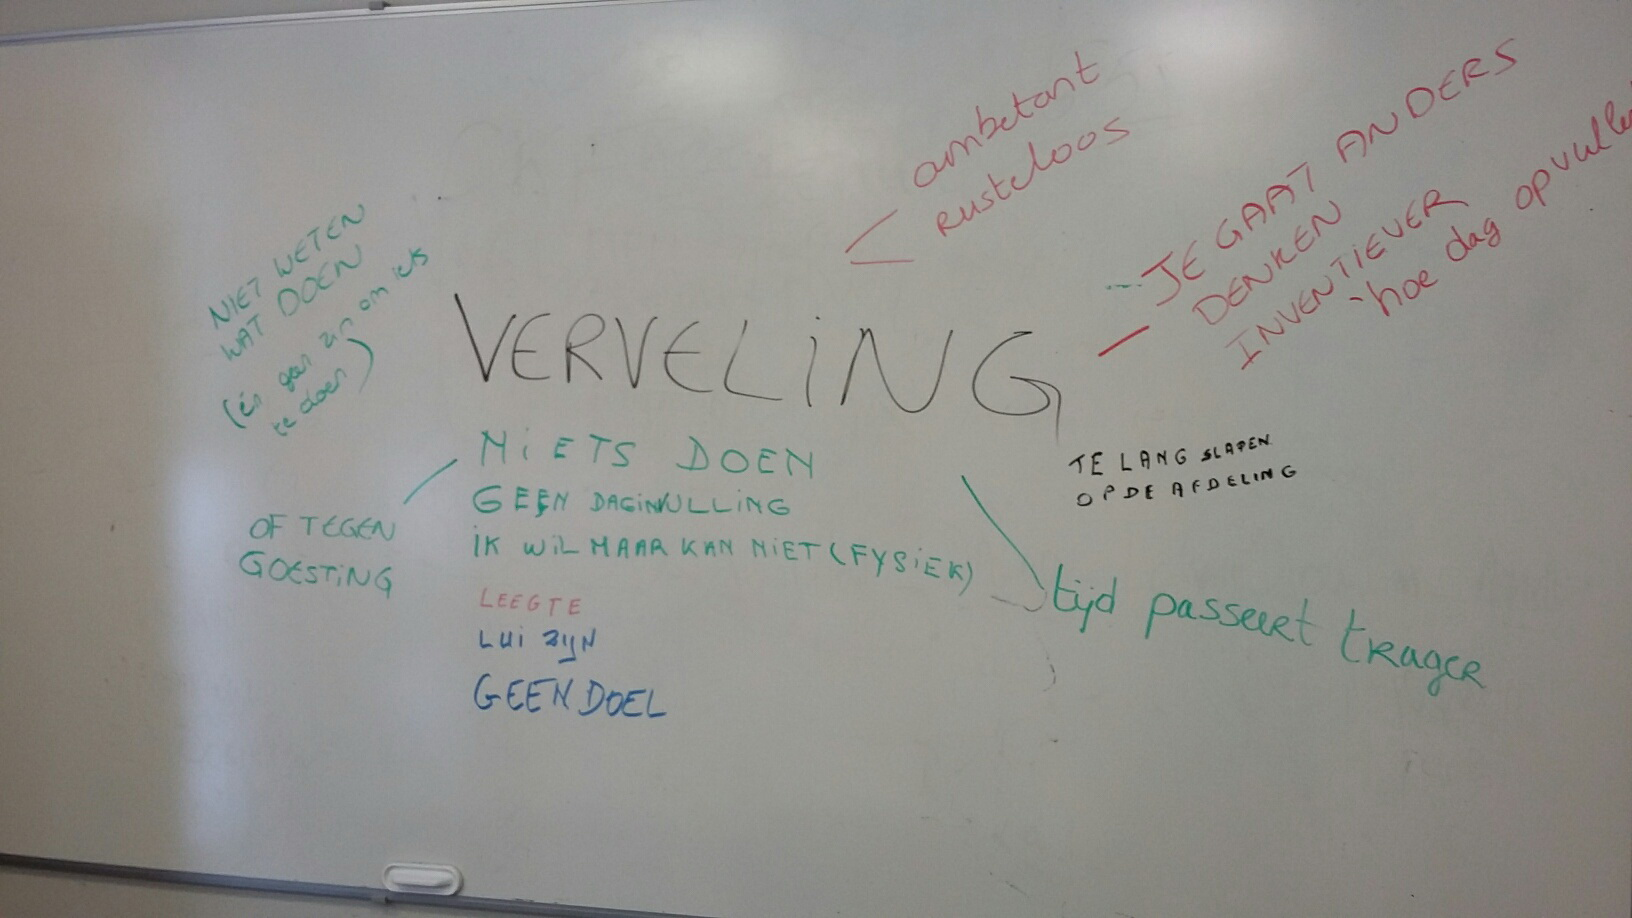 ambetant
rusteloos
JE GAAT ANDERS
DENKEN
INVENTIEVER
-hoe dag opvulle
NIET WETEN
WAT DOEN
(én geen zin om iets
te doen)
VERVELING
NIETS DOEN
GEEN DAGINVULLING
IK WIL MAAR KAN NIET (FYSIEK)
LEEGTE
LUI ZIJN
GEEN DOEL
OF TEGEN
GOESTING
TE LANG SLAPEN
OP DE AFDELING
tijd passeert trager